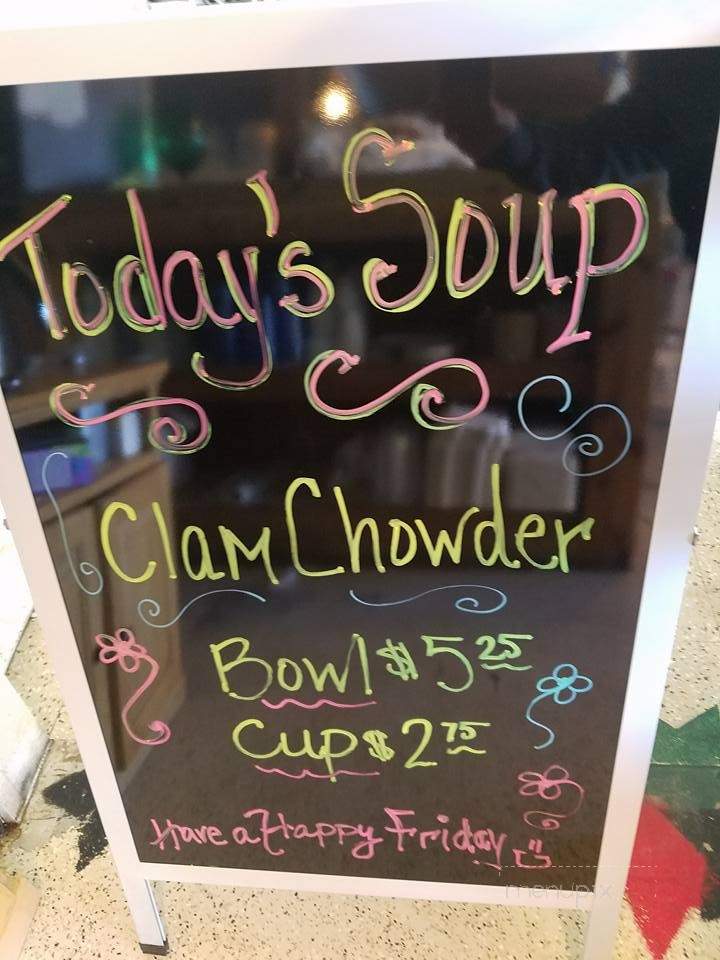 Today's Soup
Clam Chowder
Bowl $5 25
Cup $2 75
Have a Happy Friday
menupix